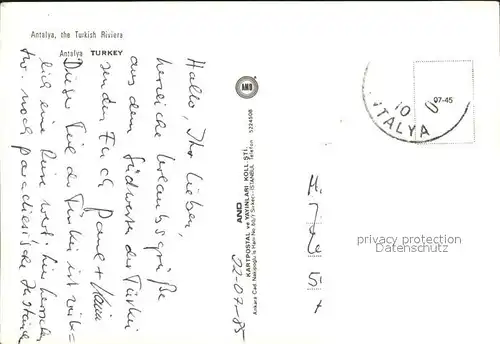 Antalya, the Turkish Riviera
Antalya TURKEY
Hallo, Ihr Lieben,
herzliche Urlaubsgrüße
aus dem Südwesten der Türkei
senden Euch Paul +
Dieser Teil der Türkei ist wirk=
lich eine Reise wert: hier herrschen
tw. noch paradiesische Zustände
AND
AND
KARTPOSTAL ve YAYINLARI KOLL. ŞTİ.
Ankara Cad. Nakipoğlu İş Hanı No. 80/7 Sirkeci-İSTANBUL Telefon 5224508
22-07-85
07-45
10
TALYA
privacy protection
Datenschutz